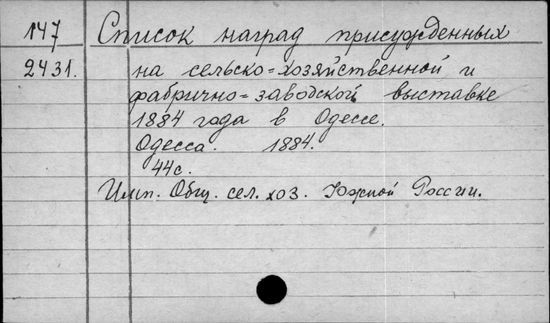 147 Список наград присужденных
2431. на сельско=хозяйственной и
фабрично=заводской выставке
1884 года в Одессе.
Одесса. 1884.
44с.
Имп. Общ. сел. хоз. Южной России.